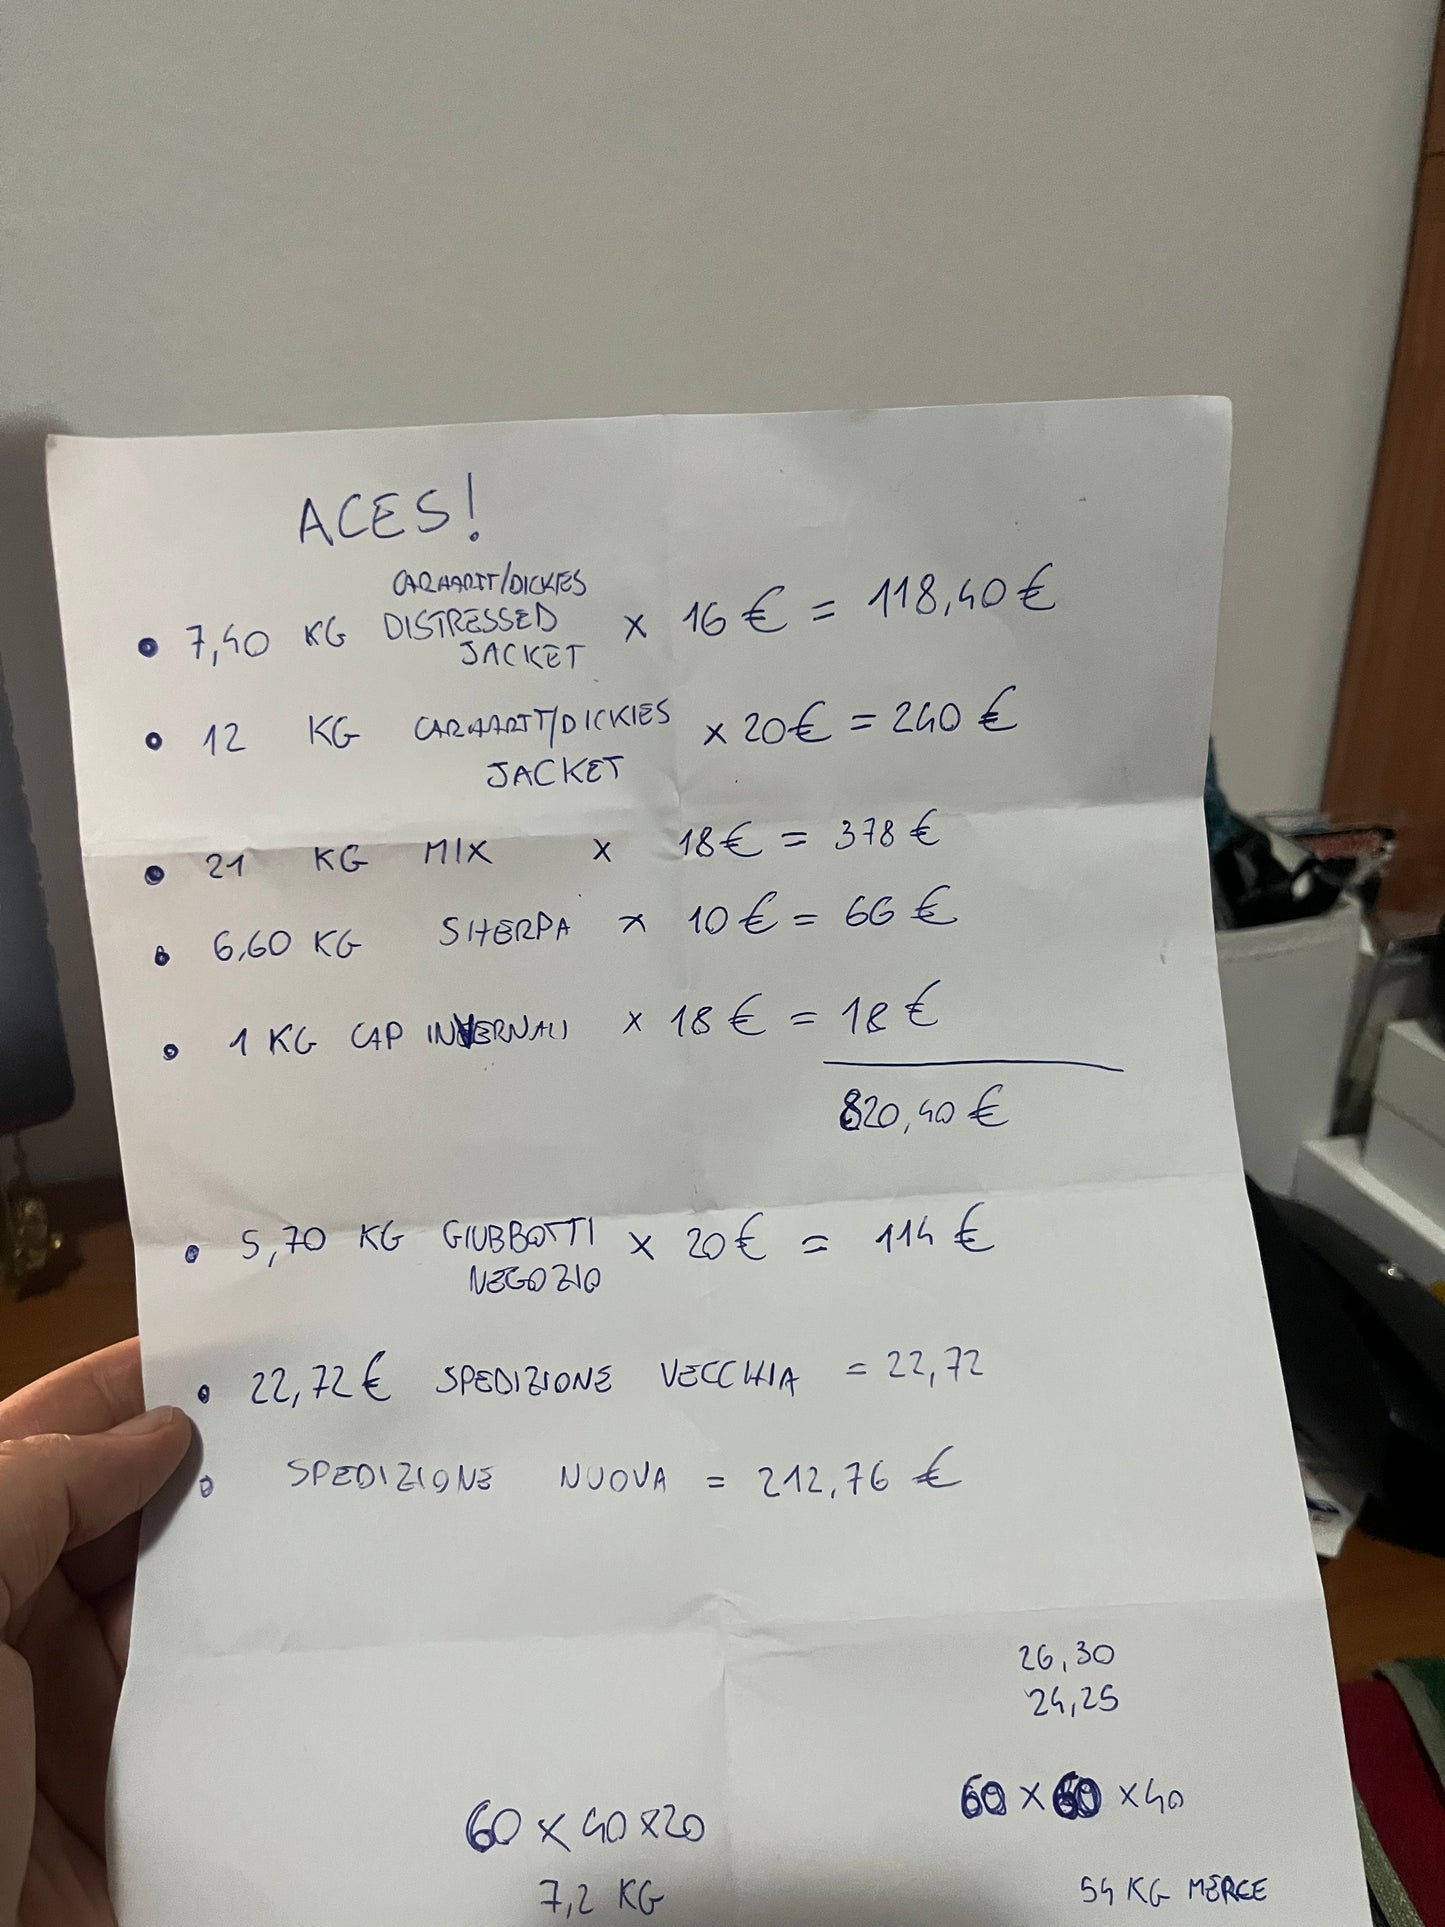 ACES!
CARHARTT/DICKIES
• 7,40 KG DISTRESSED x 16 € = 118,40 €
JACKET
• 12 KG CARHARTT/DICKIES x 20 € = 240 €
JACKET
• 21 KG MIX x 18 € = 378 €
• 6,60 KG SHERPA x 10 € = 66 €
• 1 KG CAP INVERNALI x 18 € = 18 €
820,40 €
• 5,70 KG GIUBBOTTI x 20 € = 114 €
NEGOZIO
• 22,72 € SPEDIZIONE VECCHIA = 22,72
• SPEDIZIONE NUOVA = 212,76 €
26,30
24,25
60 x 60 x 40
60 x 40 x 20
7,2 KG
54 KG MERCE